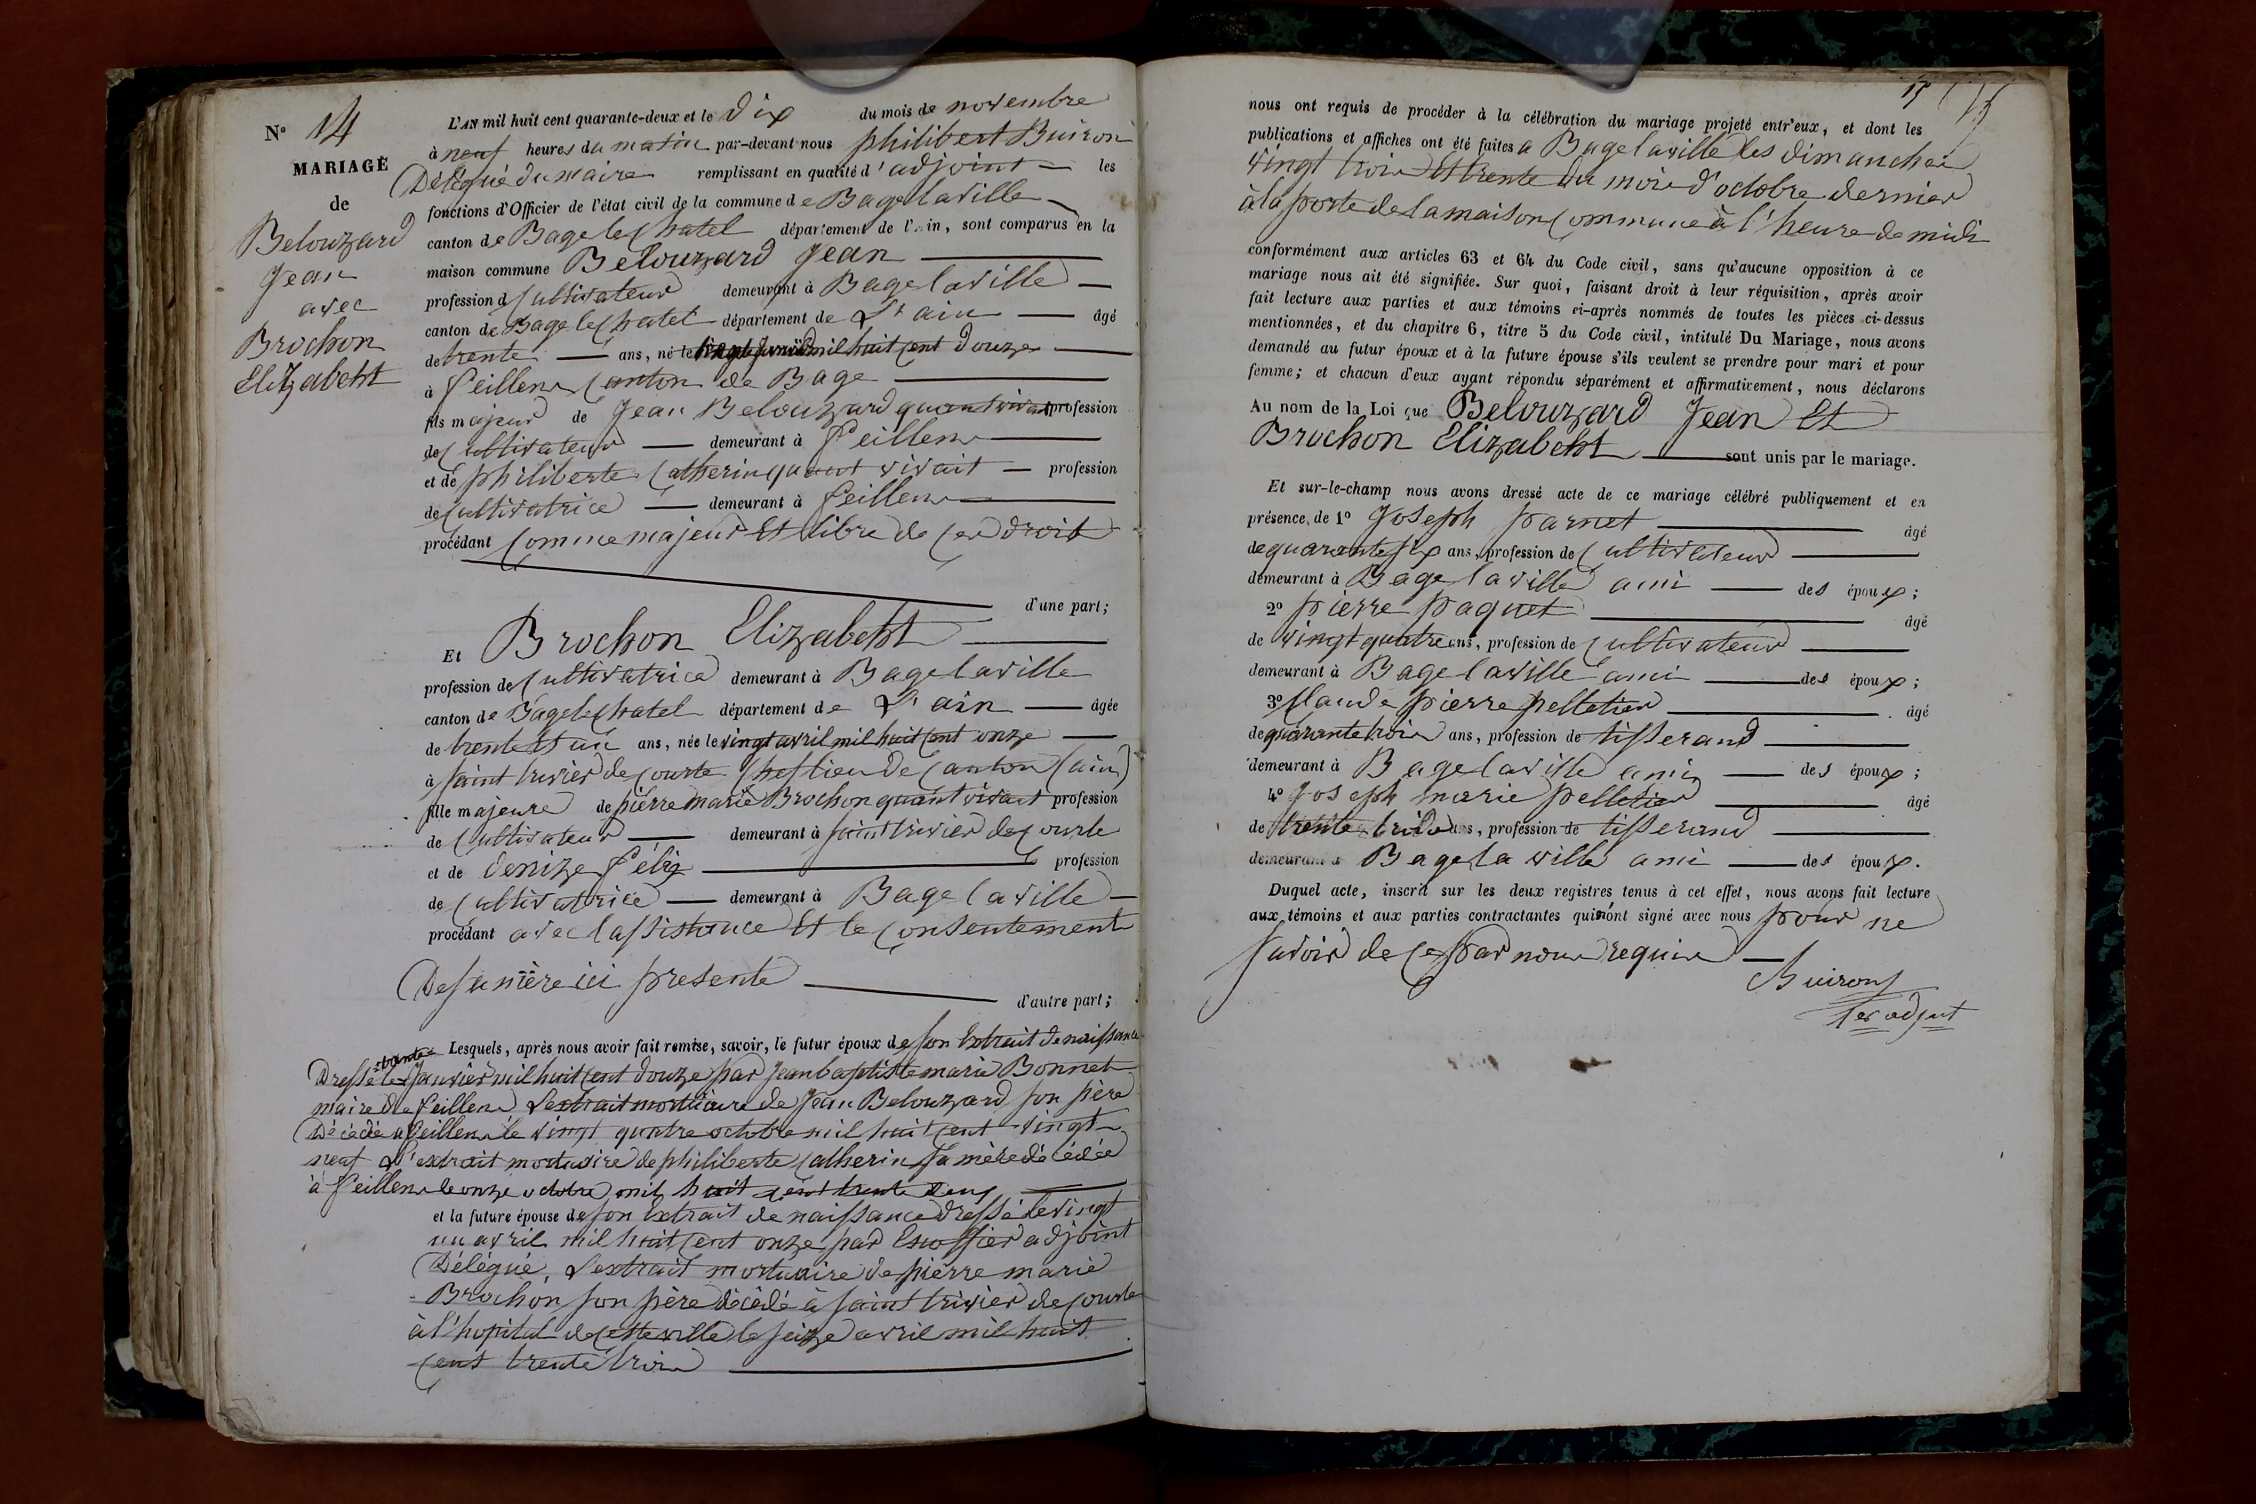 N° 14
MARIAGE
de
Belouzard
Jean
avec
Brochon
Elizabeht
L'AN mil huit cent quarante-deux et le Dix du mois de novembre
à neuf heures du matin par-devant nous philibert Buiron
Délégué du maire remplissant en qualité d'adjoint les
fonctions d'Officier de l'état civil de la commune de Bagelaville
canton de Bagelechatel département de l'Ain, sont comparus en la
maison commune Belouzard Jean
profession de Cultivateur demeurant à Bagelaville
canton de Bagelechatel département de L'ain âgé
de trente ans, né le mil huit Cent Douze
à feillens Canton de Bage
fils majeur de Jean Belouzard quant vivait profession
de Cultivateur demeurant à feillens
et de philiberte Catherin quant vivait profession
de Cultivatrice demeurant à feillens
procédant Comme majeur Et libre de Ces droit
d'une part;
Et Brochon Elizabeht
profession de Cultivatrice demeurant à Bagelaville
canton de Bagelechatel département de L'ain âgée
de trente Et un ans, née le vingt avril mil huit Cent onze
à saint trivier de Courte Cheflieu de Canton (ain)
fille majeure de pierre marie Brochon quant vivait profession
de Cultivateur demeurant à saint trivier de Courte
et de denize félix profession
de Cultivatrice demeurant à Bagelaville
procédant avec lassistance Et le Consentement
De sa mère ici presente
d'autre part;
Lesquels, après nous avoir fait remise, savoir, le futur époux de son Extrait de naissance
Dressé le trente Janvier mil huit Cent douze par Jean baptiste marie Bonnet
maire de feillens L'extrait mortuaire de Jean Belouzard son père
Décédé a feillens le vingt quatre octobre mil huit Cent vingt
neuf L'extrait mortuaire de philiberte Catherin sa mère décédée
à feillens le onze octobre mil huit Cent trente deux
et la future épouse de son Extrait de naissance dressé le vingt
un avril mil huit Cent onze par Escoffier adjoint
Délégué, L'extrait mortuaire de pierre marie
Brochon son père décédé à saint trivier de Courte
à l'hopital de Cette ville le seize avril mil huit
Cent trente trois
15
nous ont requis de procéder à la célébration du mariage projeté entr'eux, et dont les
publications et affiches ont été faites a Bagelaville les dimanches
vingt trois Et trente du mois d'octobre dernier
à la porte de la maison Commune à l'heure de midi
conformément aux articles 63 et 64 du Code civil, sans qu'aucune opposition à ce
mariage nous ait été signifiée. Sur quoi, faisant droit à leur réquisition, après avoir
fait lecture aux parties et aux témoins ci-après nommés de toutes les pièces ci-dessus
mentionnées, et du chapitre 6, titre 5 du Code civil, intitulé Du Mariage, nous avons
demandé au futur époux et à la future épouse s'ils veulent se prendre pour mari et pour
femme; et chacun d'eux ayant répondu séparément et affirmativement, nous déclarons
Au nom de la Loi que Belouzard Jean Et
Brochon Elizabeht sont unis par le mariage.
Et sur-le-champ nous avons dressé acte de ce mariage célébré publiquement et en
présence, de 1° Joseph parnet âgé
de quarante six ans, profession de Cultivateur
demeurant à Bagelaville ami des époux;
2° pierre paquet âgé
de vingt quatre ans, profession de Cultivateur
demeurant à Bagelaville ami des époux;
3° Claude pierre pelletier âgé
de quarante trois ans, profession de tisserand
demeurant à Bagelaville ami des époux;
4° Joseph marie pelletier âgé
de trente trois ans, profession de tisserand
demeurant à Bagelaville ami des époux.
Duquel acte, inscrit sur les deux registres tenus à cet effet, nous avons fait lecture
aux témoins et aux parties contractantes qui n'ont signé avec nous pour ne
savoir de Ce par nous requis
Buiron
1er adjoint